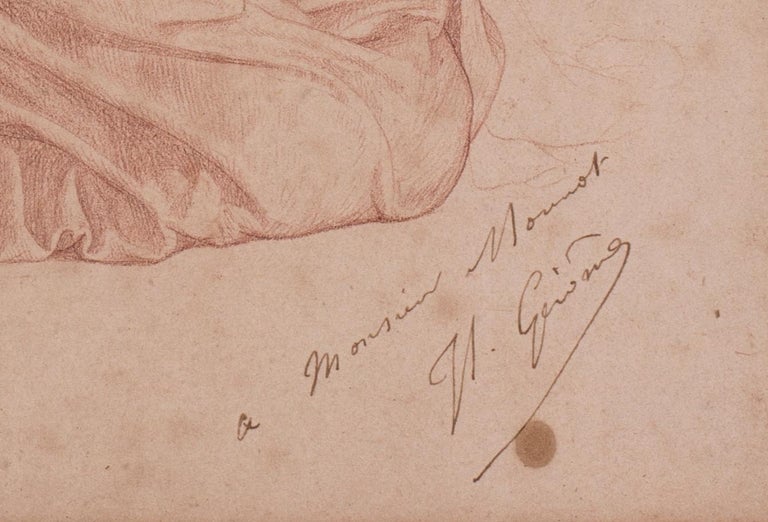 a Monsieur Monnot
H. Gérôme